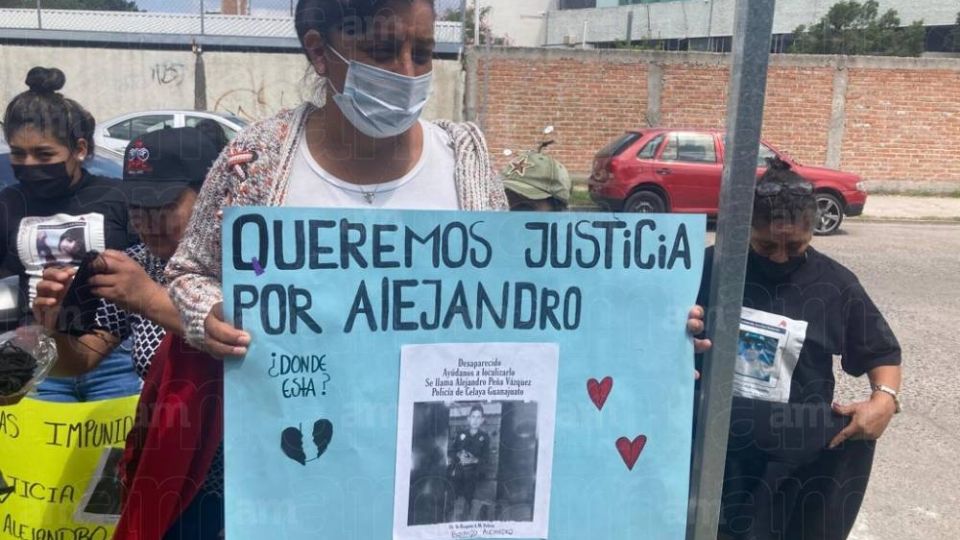 QUEREMOS JUSTICIA
POR ALEJANDRO
¿DONDE
ESTA?
Desaparecido
Ayúdanos a localizarlo
Se llama Alejandro Peña Vázquez
Policía de Celaya Guanajuato
ALEJANDRO
AS IMPUNID
TICIA
ALEJANDRO
am